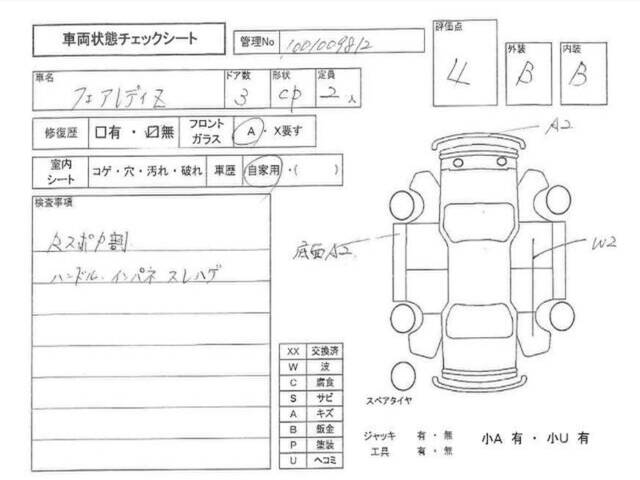 車両状態チェックシート
管理No 1001009812
評価点 4
外装 B
内装 B
車名 フェアレディZ
ドア数 3
形状 CP
定員 2人
修復歴 □有・☑無
フロントガラス A・X要す
室内シート コゲ・穴・汚れ・破れ
車歴 自家用・( )
検査事項
スポイラ割
ハンドル.インパネ スレハゲ
A2
底面A2
W2
XX 交換済
W 波
C 腐食
S サビ
A キズ
B 鈑金
P 塗装
U ヘコミ
スペアタイヤ
ジャッキ 有・無
工具 有・無
小A 有・小U 有